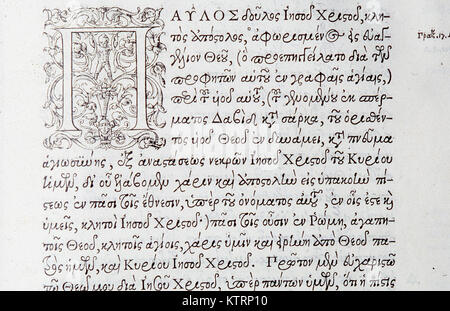 ΠΑΥΛΟΣ δοῦλος Ἰησοῦ Χριστοῦ, κλη-
τὸς ἀπόστολος, ἀφωρισμένος εἰς εὐαγ-
γέλιον Θεοῦ, (ὃ προεπηγγείλατο διὰ τῶν
προφητῶν αὑτοῦ ἐν γραφαῖς ἁγίαις,)
περὶ τοῦ υἱοῦ αὑτοῦ, (τοῦ γενομένου ἐκ σπέρ-
ματος Δαβὶδ κατὰ σάρκα, τοῦ ὁρισθέν-
τος υἱοῦ Θεοῦ ἐν δυνάμει, κατὰ πνεῦμα
ἁγιωσύνης, ἐξ ἀναστάσεως νεκρῶν Ἰησοῦ Χριστοῦ τοῦ Κυρίου
ἡμῶν, δι' οὗ ἐλάβομεν χάριν καὶ ἀποστολὴν εἰς ὑπακοὴν πί-
στεως ἐν πᾶσι τοῖς ἔθνεσιν, ὑπὲρ τοῦ ὀνόματος αὑτοῦ, ἐν οἷς ἐστε καὶ
ὑμεῖς, κλητοὶ Ἰησοῦ Χριστοῦ) πᾶσι τοῖς οὖσιν ἐν Ῥώμῃ, ἀγαπη-
τοῖς Θεοῦ, κλητοῖς ἁγίοις, χάρις ὑμῖν καὶ εἰρήνη ἀπὸ Θεοῦ πα-
τρὸς ἡμῶν, καὶ Κυρίου Ἰησοῦ Χριστοῦ. Πρῶτον μὲν εὐχαριστῶ
τῷ Θεῷ μου διὰ Ἰησοῦ Χριστοῦ, ὑπὲρ πάντων ὑμῶν, ὅτι ἡ πίστις
alamy
KTRP10